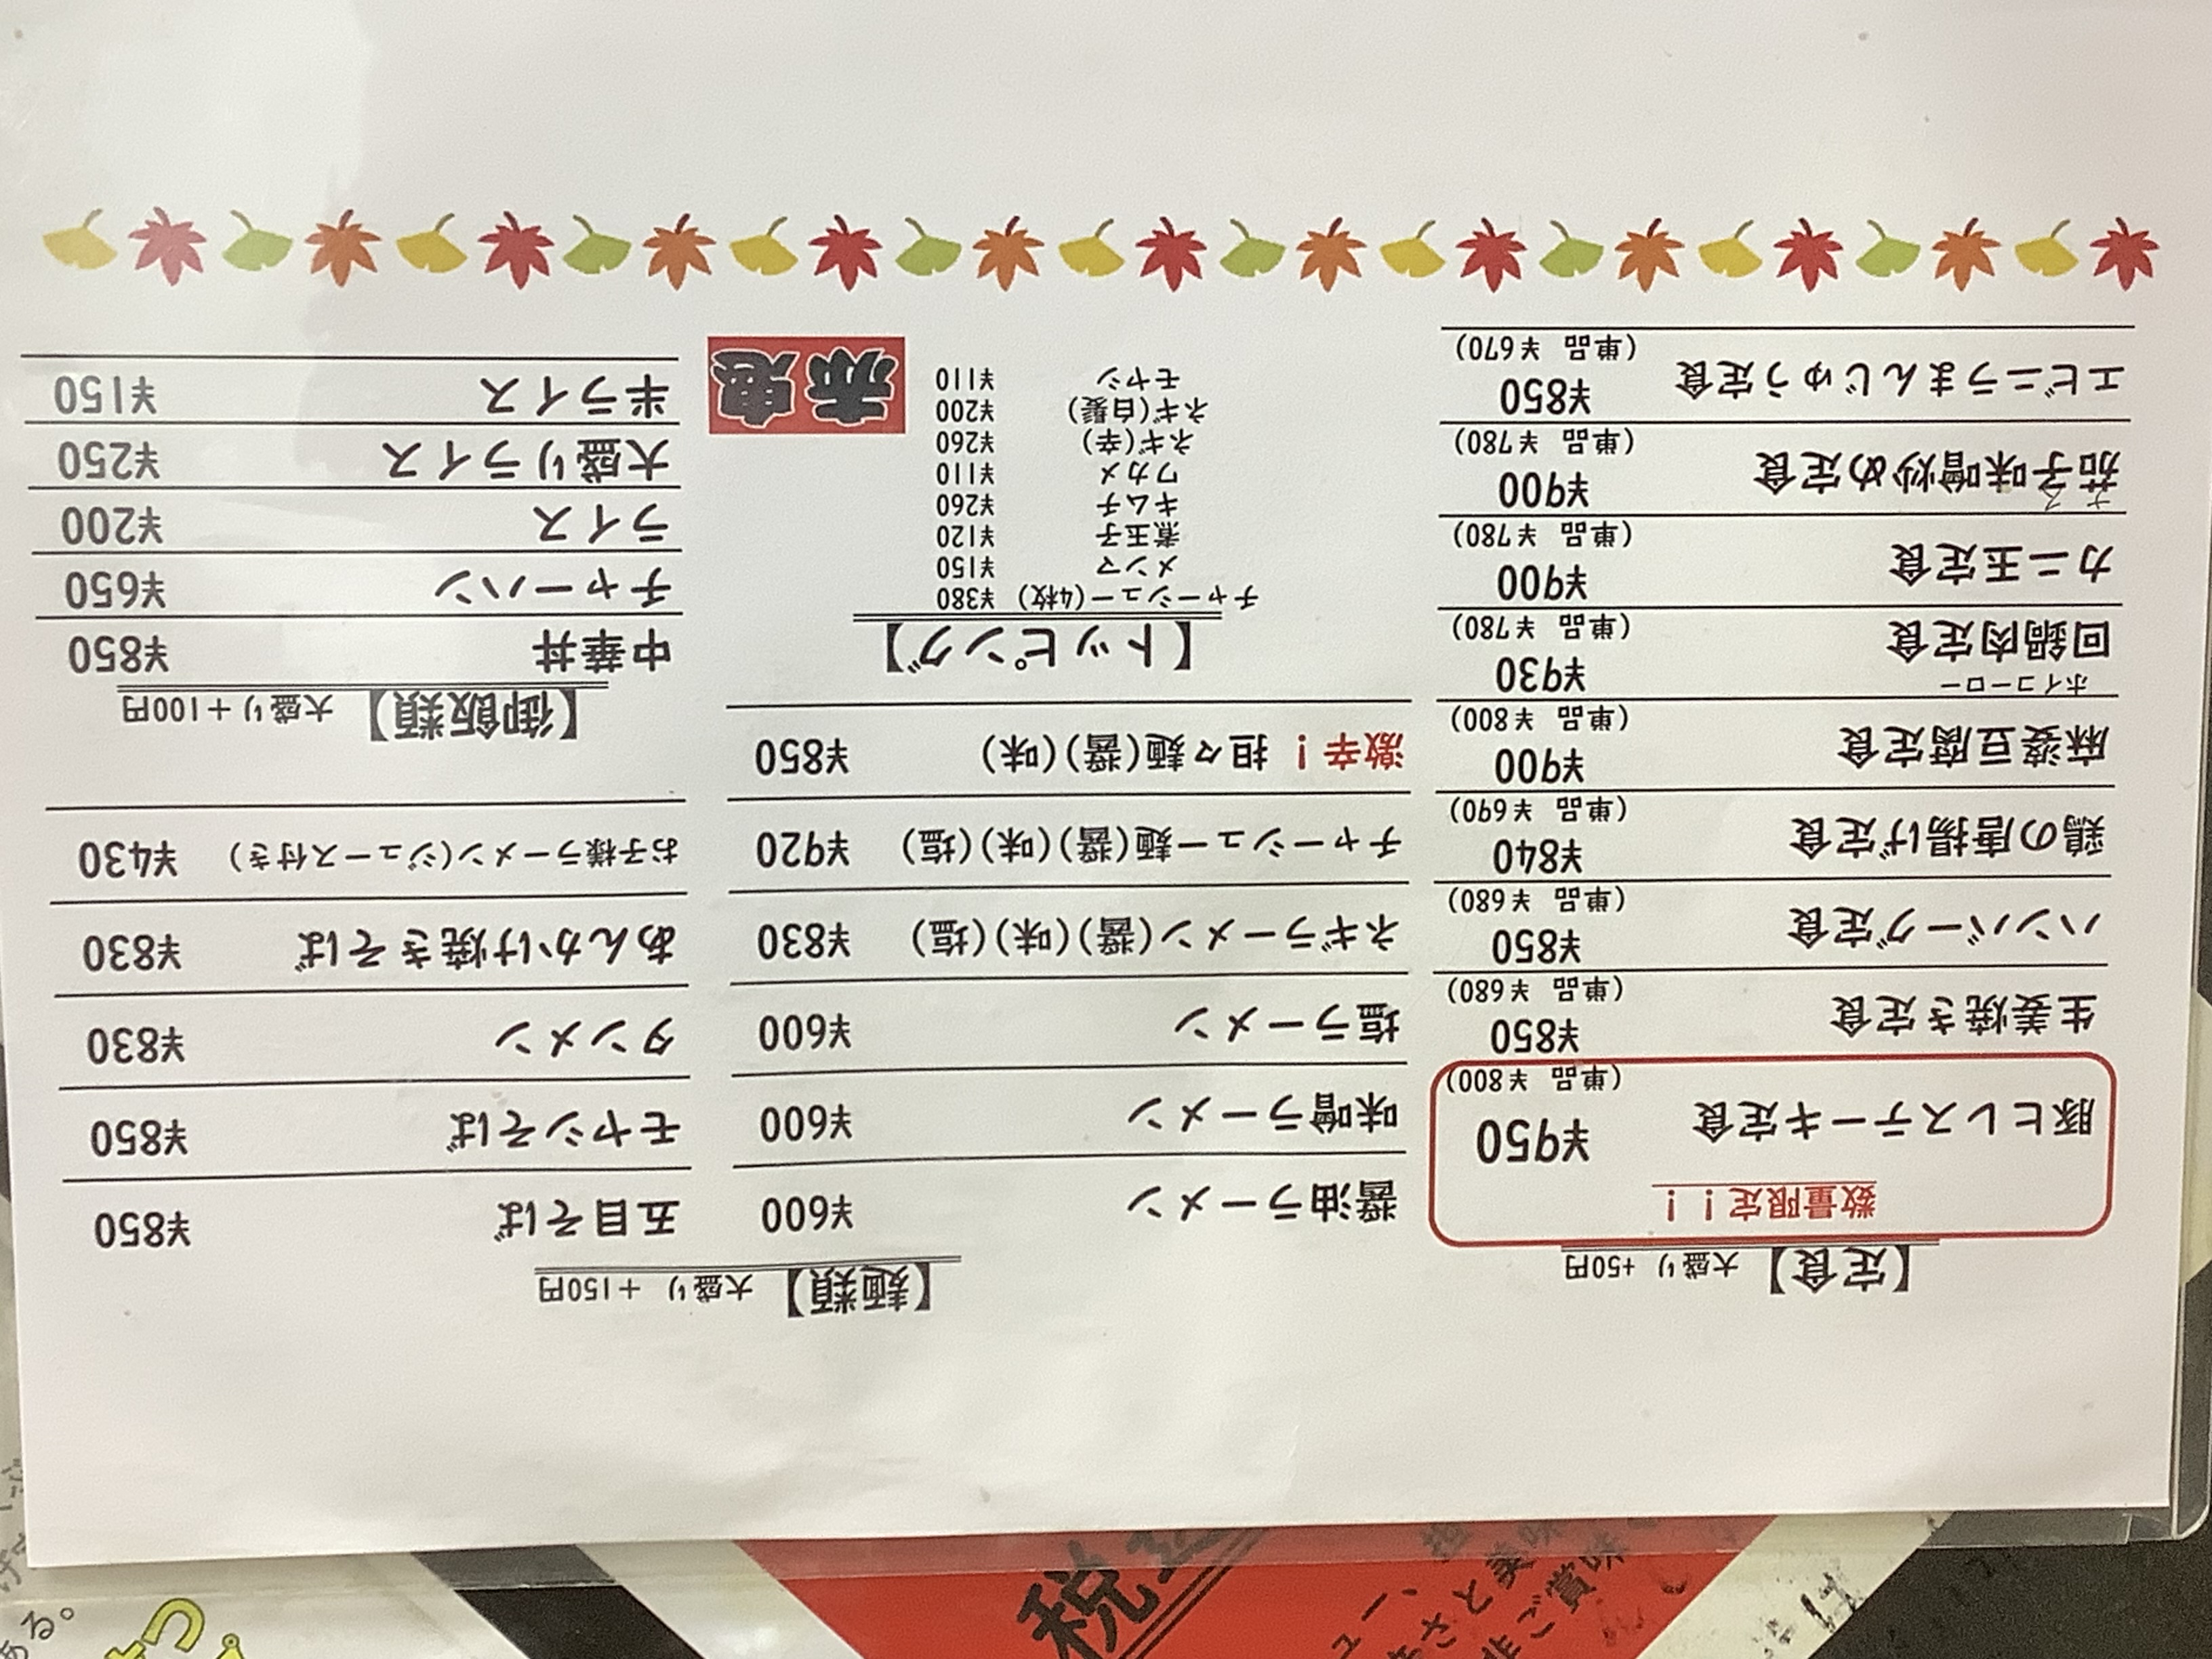 【定食】 大盛り +50円
数量限定！！
豚ヒレステーキ定食 ¥950
(単品 ¥800)
生姜焼き定食 ¥850
(単品 ¥680)
ハンバーグ定食 ¥850
(単品 ¥680)
鶏の唐揚げ定食 ¥840
(単品 ¥690)
麻婆豆腐定食 ¥900
(単品 ¥800)
ホイコーロー
回鍋肉定食 ¥930
(単品 ¥780)
カニ玉定食 ¥900
(単品 ¥780)
ナス
茄子味噌炒め定食 ¥900
(単品 ¥780)
エビニラまんじゅう定食 ¥850
(単品 ¥670)
【麺類】 大盛り ＋150円
醤油ラーメン ¥600
味噌ラーメン ¥600
塩ラーメン ¥600
ネギラーメン(醤)(味)(塩) ¥830
チャーシュー麺(醤)(味)(塩) ¥920
激辛！ 担々麺(醤)(味) ¥850
五目そば ¥850
モヤシそば ¥850
タンメン ¥830
あんかけ焼きそば ¥830
お子様ラーメン(ジュース付き) ¥430
【トッピング】
チャーシュー(4枚) ¥380
メンマ ¥150
煮玉子 ¥120
キムチ ¥260
ワカメ ¥110
ネギ(辛) ¥260
ネギ(白髪) ¥200
モヤシ ¥110
赤鬼
【御飯類】 大盛り＋100円
中華丼 ¥850
チャーハン ¥650
ライス ¥200
大盛りライス ¥250
半ライス ¥150
税
ュー、
あさと美味
非ご賞味
ある。